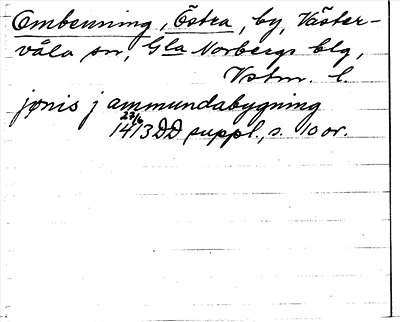 Ombenning, Östra, by, Väster-
våla sn, Gla Norbergs blg,
Vstm. l.
jønis j ammundabygning
27/6
1413 DD suppl., s. 10 or.